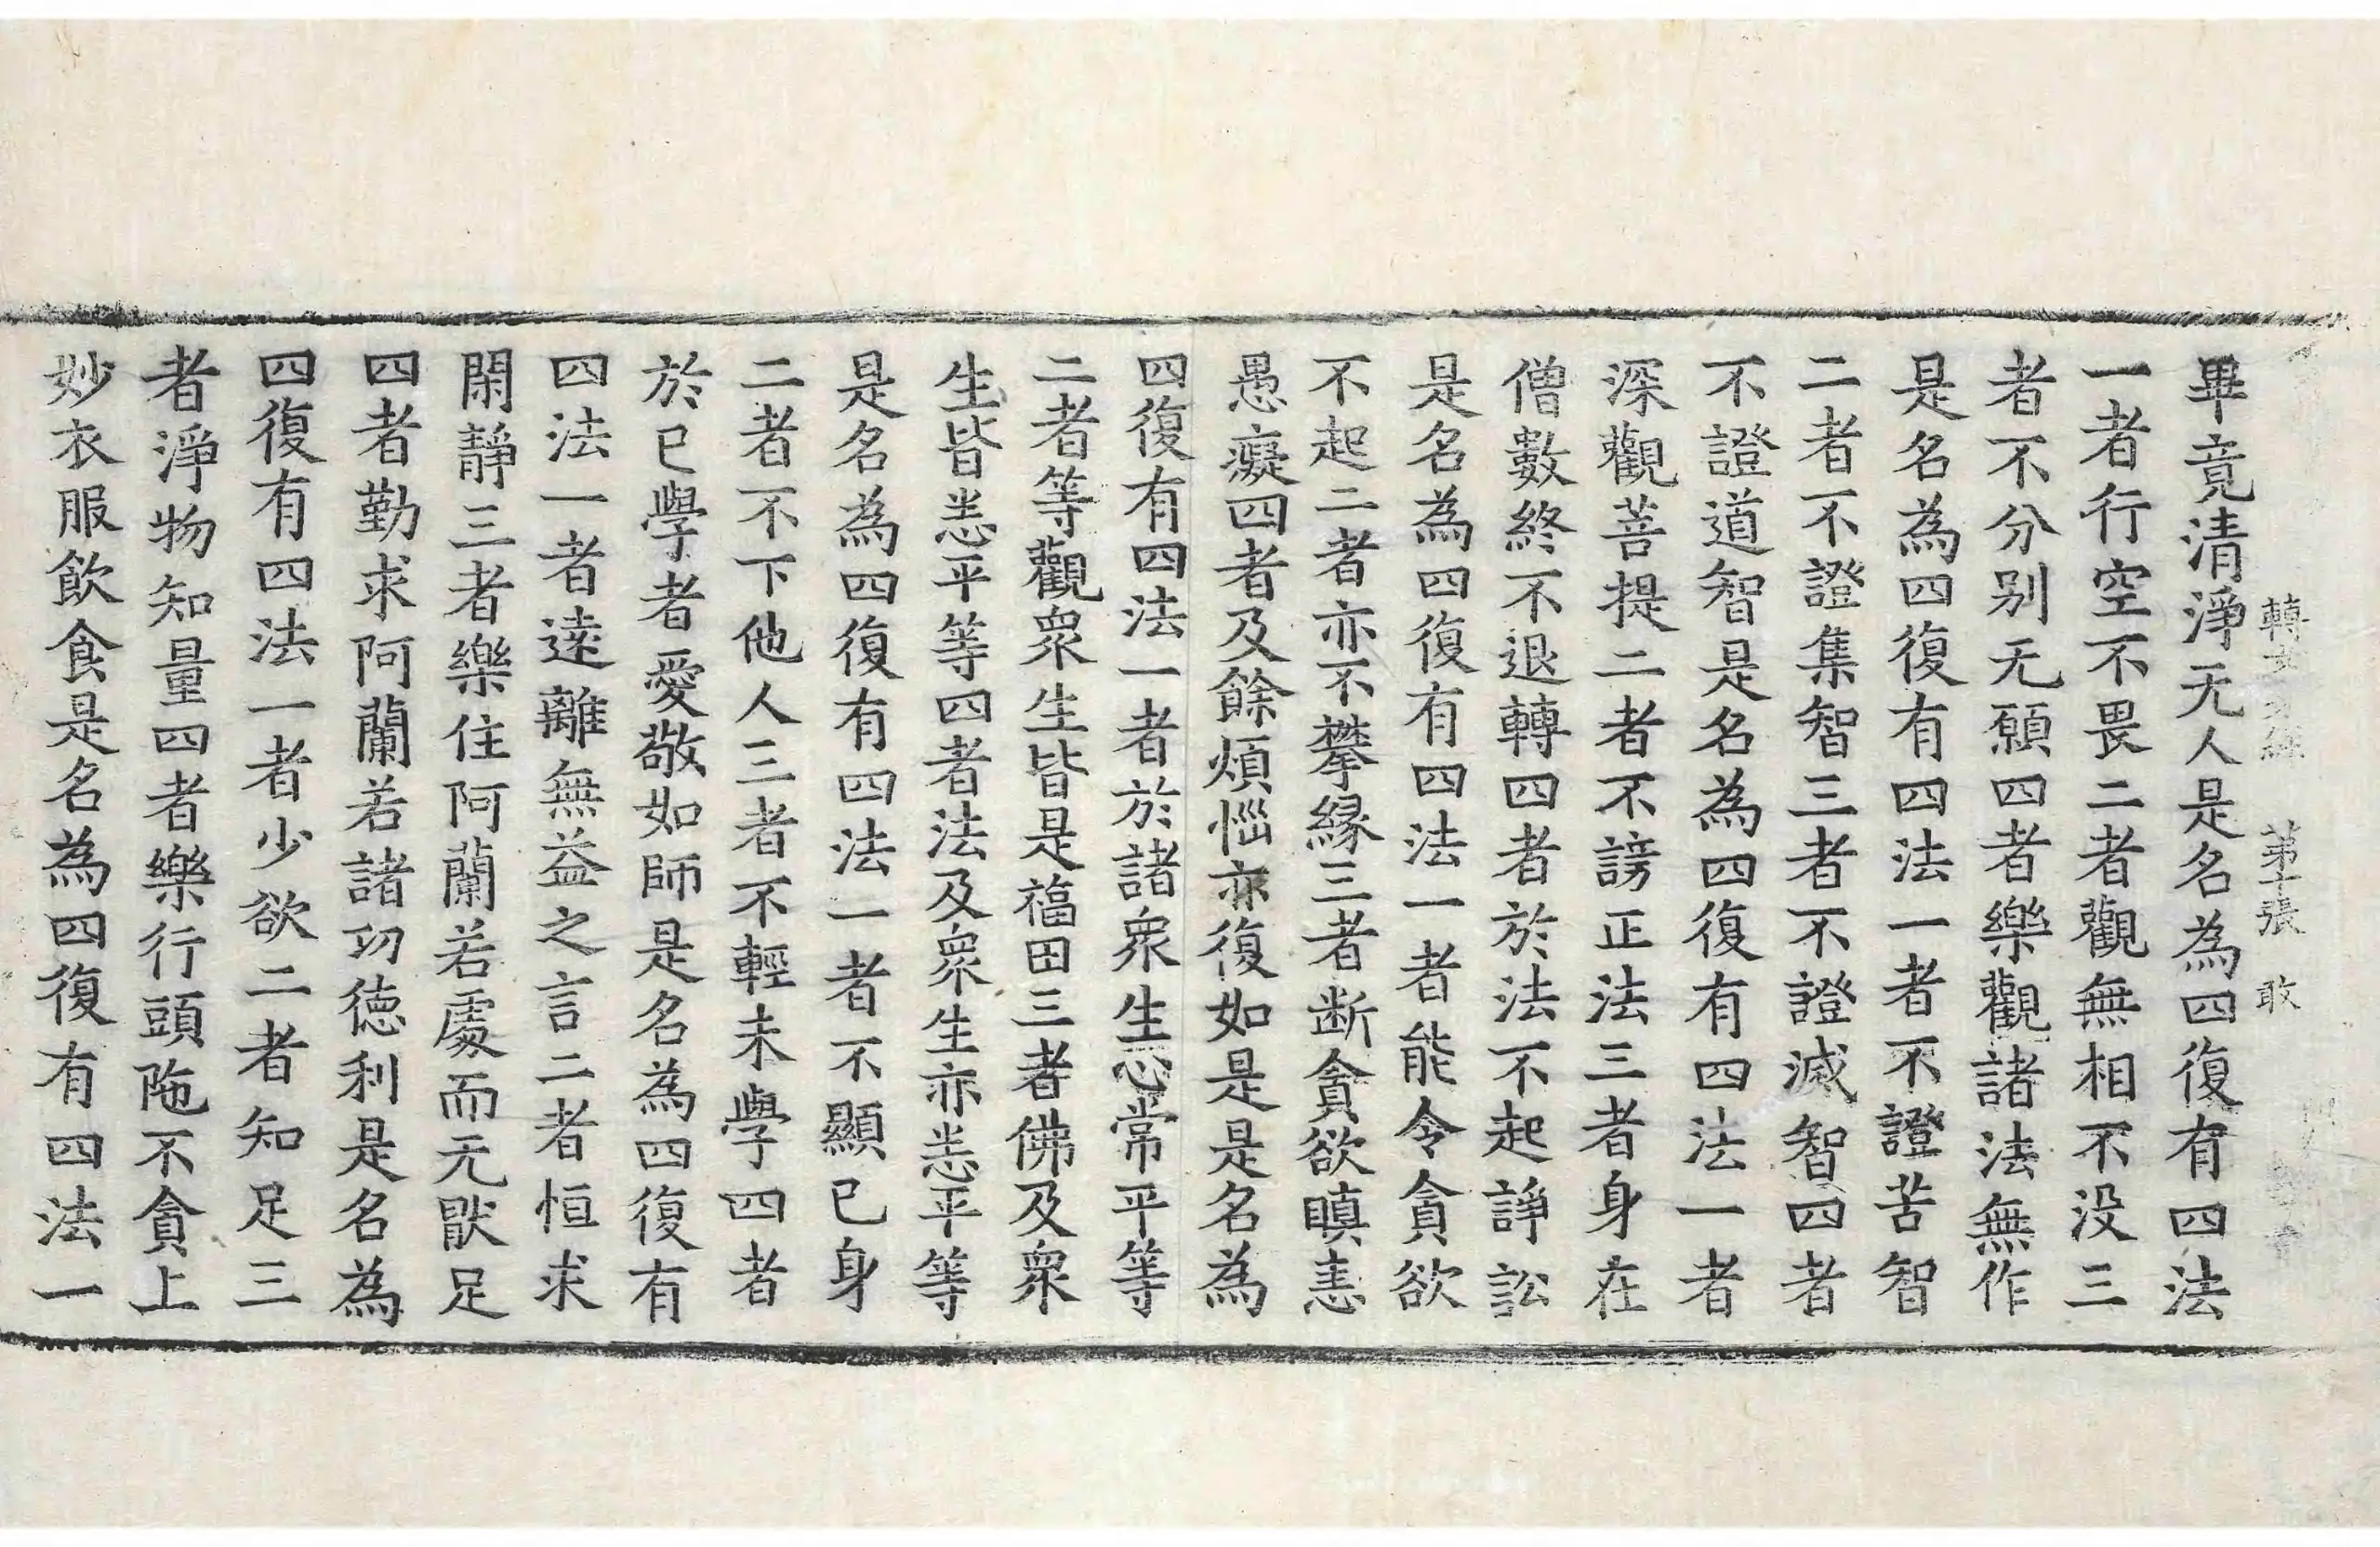 轉女身經 第十張 敢
畢竟清淨无人是名為四復有四法
一者行空不畏二者觀無相不没三
者不分别无願四者樂觀諸法無作
是名為四復有四法一者不證苦智
二者不證集智三者不證滅智四者
不證道智是名為四復有四法一者
深觀菩提二者不謗正法三者身在
僧數終不退轉四者於法不起諍訟
是名為四復有四法一者能令貪欲
不起二者亦不攀緣三者断貪欲瞋恚
愚癡四者及餘煩惱亦復如是是名為
四復有四法一者於諸衆生心常平等
二者等觀衆生皆是福田三者佛及衆
生皆悉平等四者法及衆生亦悉平等
是名為四復有四法一者不顯已身
二者不下他人三者不輕未學四者
於已學者愛敬如師是名為四復有
四法一者遠離無益之言二者恒求
閑靜三者樂住阿蘭若處而无猒足
四者勤求阿蘭若諸功德利是名為
四復有四法一者少欲二者知足三
者淨物知量四者樂行頭陁不貪上
妙衣服飲食是名為四復有四法一